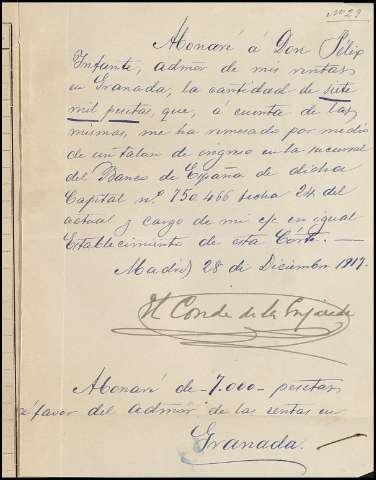 Nº 29
Abonaré á Don Félix
Infante, admor de mis rentas
en Granada, la cantidad de siete
mil pesetas, que, á cuenta de las
mismas, me ha remesado por medio
de un talon de ingreso en la sucursal
del Banco de España de dicha
Capital nº 750.466 fecha 24 del
actual y cargo de mi c/c en igual
Establecimiento de esta Córte. —
Madrid 28 de Diciembre 1917.
El Conde de la
Abonaré de -7.000- pesetas
á favor del admor de las rentas en
Granada.